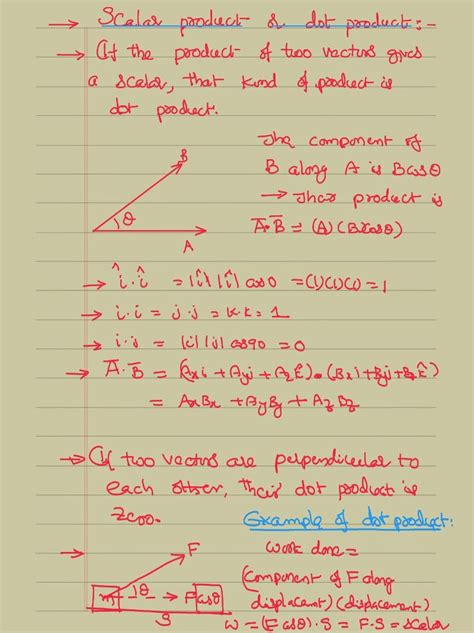 → Scalar product or dot product :-
→ If the product of two vectors gives
a scalar, that kind of product is
dot product.
The component of
B along A is Bcosθ
→ Thar product is
A̅·B̅ = (A)(Bcosθ)
B
θ
A
→ î·î = |î| |î| cos0 = (1)(1)(1) = 1
→ i·i = j·j = k·k = 1
→ i·j = |i| |j| cos90 = 0
→ A̅·B̅ = (Axi + Ayj + Azk̂)·(Bxi+Byj+Bzk̂)
= AxBx + AyBy + AzBz
→ If two vectors are perpendicular to
each other, their dot product is
zero.
Example of dot product:
→ F
m θ → Fcosθ
S
Work done =
(component of F along
displacant) (displacement)
W = (F cosθ)·S = F·S = scalar